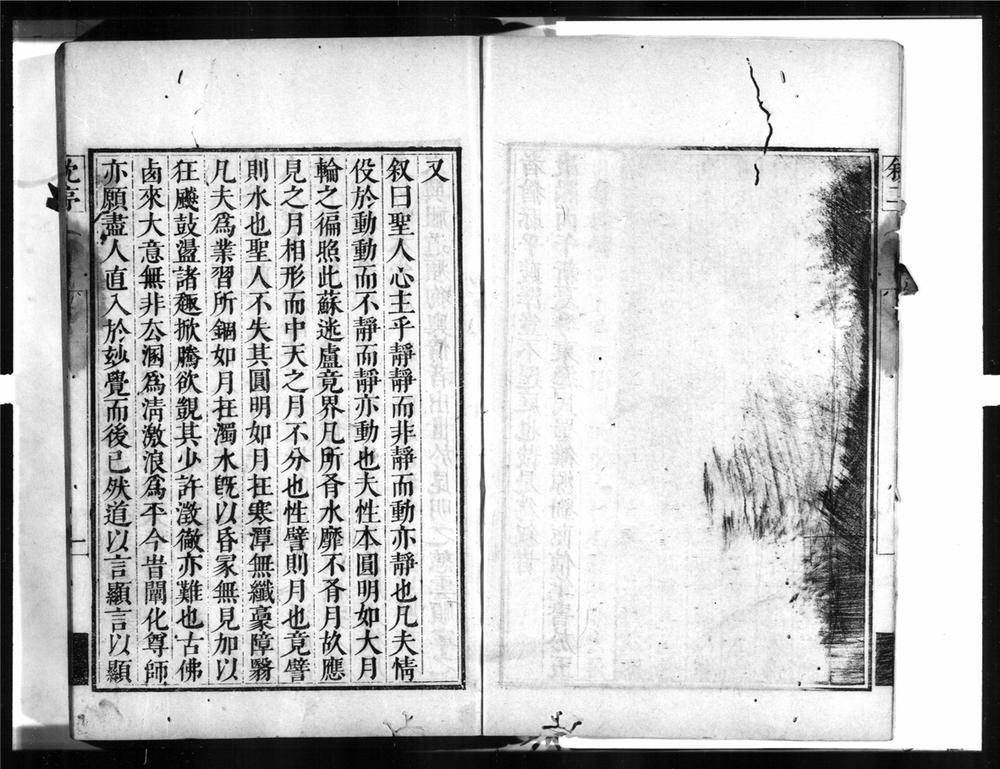 叙二
又
叙曰聖人心主乎靜靜而非靜而動亦靜也凡夫情
役於動動而不靜而靜亦動也夫性本圓明如大月
輪之徧照此蘇迷盧竟界凡所有水靡不有月故應
見之月相形而中天之月不分也性譬則月也竟譬
則水也聖人不失其圓明如月在寒潭無纖豪障翳
凡夫爲業習所錮如月在濁水旣以昏冢無見加以
狂飈鼓盪諸趣掀騰欲覬其少許澂徹亦難也古佛
鹵來大意無非公溷爲淸激浪爲平今昔闡化尊師
亦願盡人直入於妙覺而後已然道以言顯言以顯